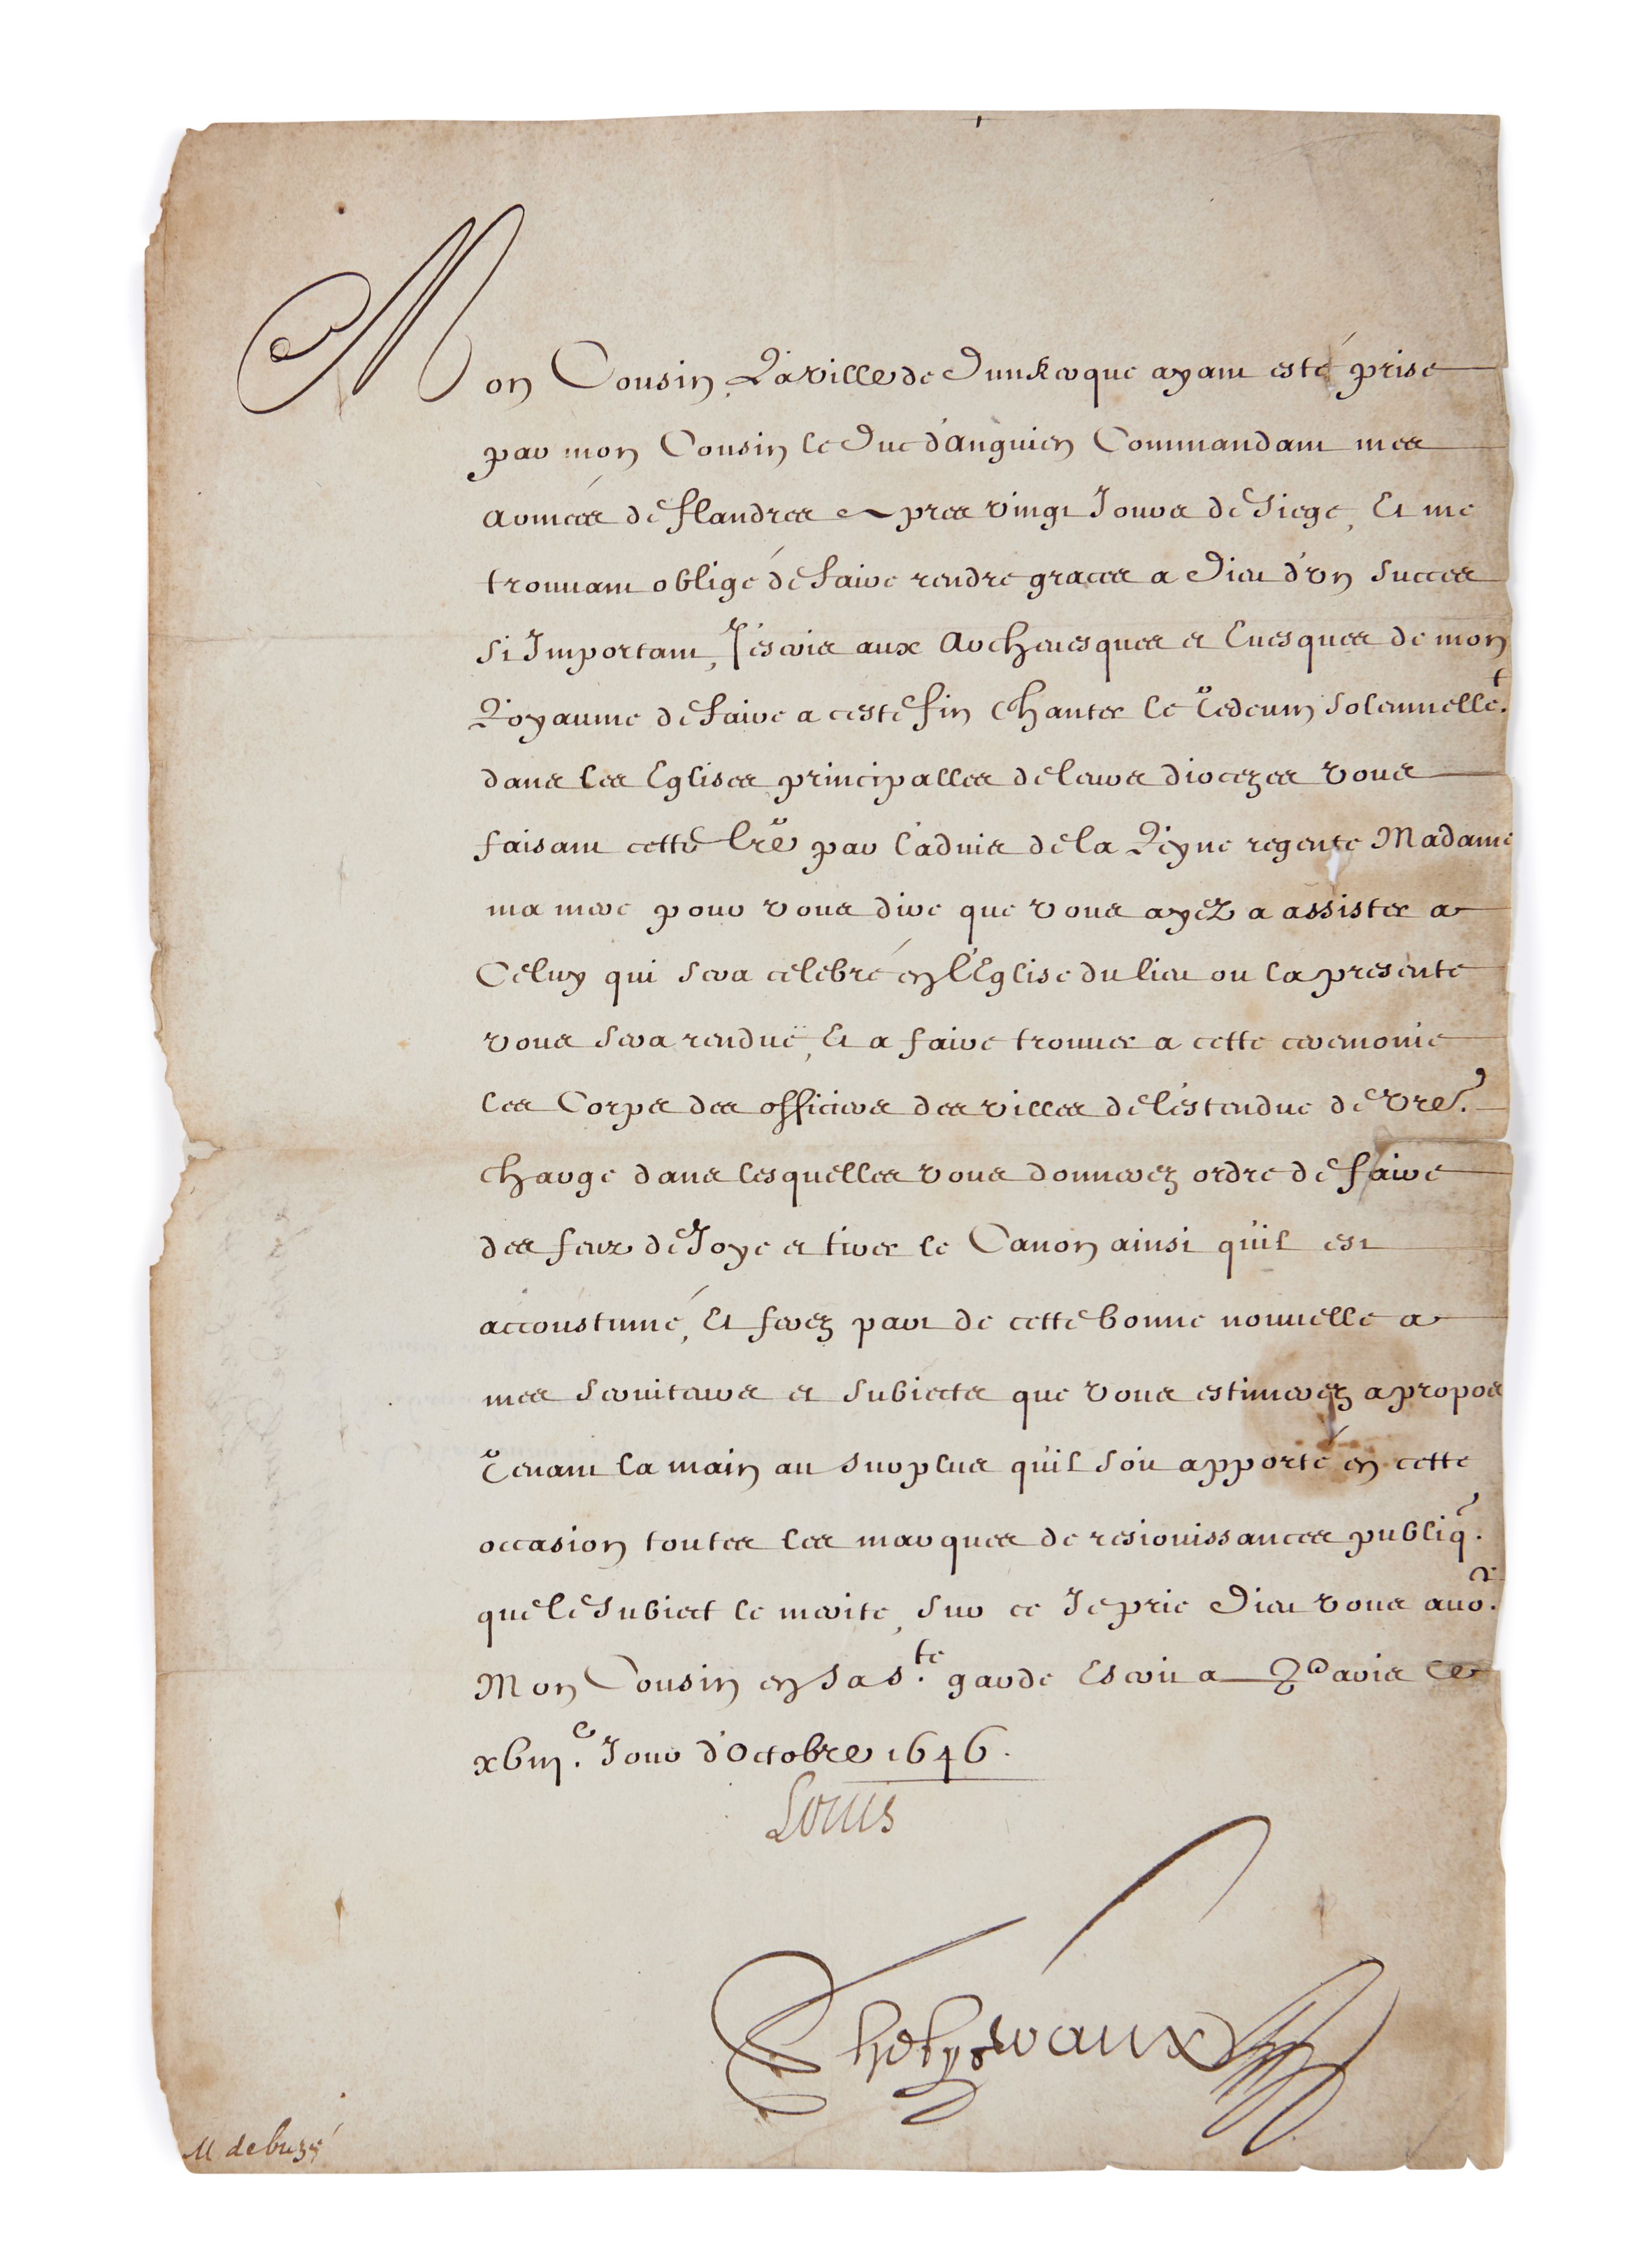 Mon Cousin, La ville de Dunkerque ayant esté prise
par mon Cousin le Duc d'Anguien Commandant mes
armées de flandres apres vingt Jours de Siege, Et me
trouuant obligé de faire rendre graces a Dieu d'vn succes
si Important, J'escris aux Archeuesques et Euesques de mon
Royaume de faire a ceste fin chanter le Te deum solennellet.
dans les Eglises principalles de leurs diocezes vous
faisant cette lre par l'aduis de la Reyne regente Madame
ma mere pour vous dire que vous ayez a assister a
Celuy qui sera celebré en l'Eglise du lieu ou la presente
vous sera renduë, Et a faire trouuer a cette ceremonie
les Corps des officiers des villes de l'estendue de vre.
charge dans lesquelles vous donnerez ordre de faire
des feux de Joye et tirer le Canon ainsi qu'il est
accoustumé, Et ferez part de cette bonne nouuelle a
mes seruiteurs et subiects que vous estimerez a propos
Tenant la main au surplus qu'il soit apporté en cette
occasion toutes les marques de resiouissances publiq.
que le subiect le merite, sur ce Je prie Dieu vous auor.
Mon Cousin en sa s.te garde Escrit a Paris Le
xviij.e Jour d'Octobre 1646.
Louis
M de buzy